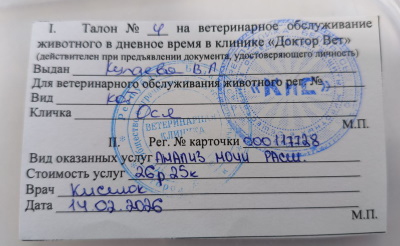 I. Талон № 4 на ветеринарное обслуживание
животного в дневное время в клинике «Доктор Вет»
(действителен при предъявлении документа, удостоверяющего личность)
Выдан В.А.
Для ветеринарного обслуживания животного рег.№
Вид кот
Кличка Ося
М.П.
II. Рег. № карточки 000117728
Вид оказанных услуг Анализ мочи расш.
Стоимость услуг 26р 25к
Врач Киселюк
Дата 14.02.2026
М.П.
ВЕТЕРИНАРНАЯ
КЛИНИКА